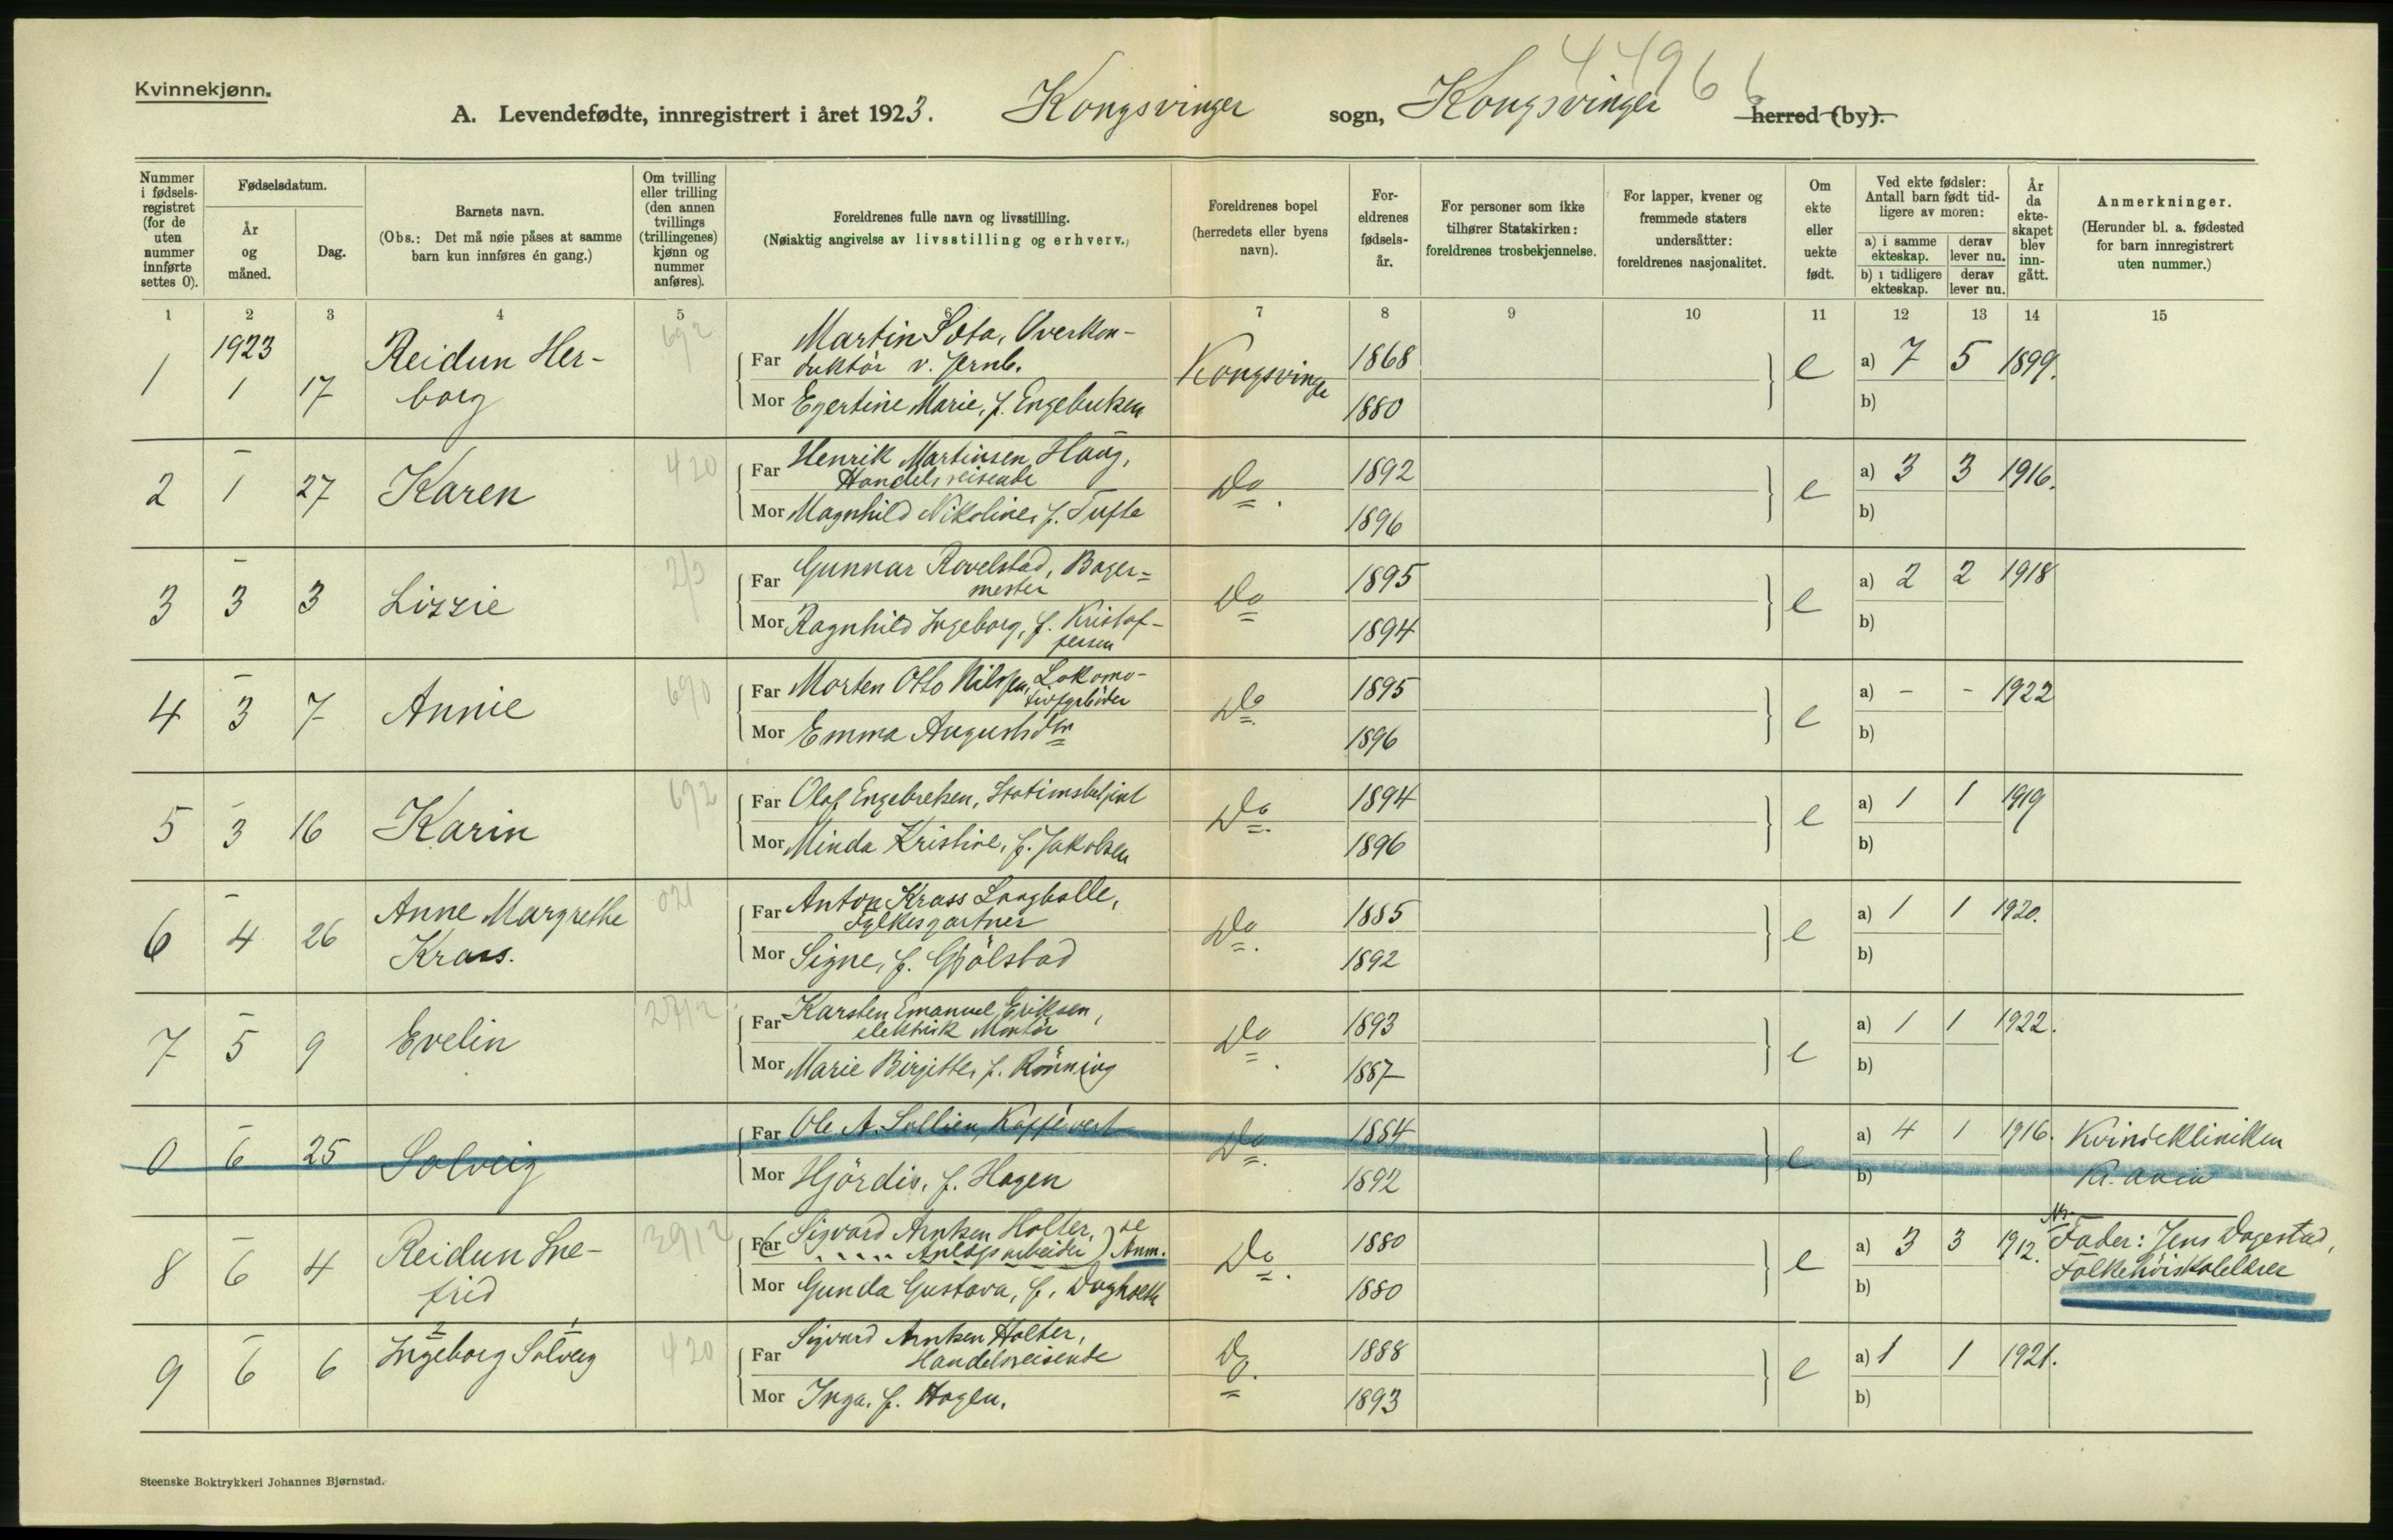 44966
Kvinnekjønn.
A. Levendefødte, innregistrert i året 1923. Kongsvinger sogn, Kongsvinger herred (by).
Nummer i fødsels-registret (for de uten nummer innførte settes 0).
Fødselsdatum.
År og måned.
Dag.
Barnets navn.
(Obs.: Det må nøie påses at samme barn kun innføres én gang.)
Om tvilling eller trilling (den annen tvillings (trillingenes) kjønn og nummer anføres).
Foreldrenes fulle navn og livsstilling.
(Nøiaktig angivelse av livsstilling og erhverv.)
Foreldrenes bopel (herredets eller byens navn).
For-eldrenes fødsels-år.
For personer som ikke tilhører Statskirken: foreldrenes trosbekjennelse.
For lapper, kvener og fremmede staters undersåtter: foreldrenes nasjonalitet.
Om ekte eller uekte født.
Ved ekte fødsler: Antall barn født tid-ligere av moren:
a) i samme ekteskap. derav lever nu.
b) i tidligere ekteskap. derav lever nu.
År da ekte-skapet blev inn-gått.
Anmerkninger.
(Herunder bl. a. fødested for barn innregistrert uten nummer.)
1 2 3 4 5 6 7 8 9 10 11 12 13 14 15
1 1923 1 17 Reidun Her-
borg 692
Far Martin Sæta, Overkon-
duktør v. Jernb. Kongsvinger 1868 e a) 7 5 1899.
Mor Egertine Marie, f. Engebretsen 1880 b)
2 – 1 27 Karen 420
Far Henrik Martinsen Haug,
Handelsreisende Do. 1892 e a) 3 3 1916.
Mor Magnhild Nikoline, f. Tufte 1896 b)
3 – 3 3 Lizzie
Far Gunnar Ravelstad, Bager=
mester Do 1895 e a) 2 2 1918
Mor Ragnhild Ingeborg, f. Kristof-
fersen 1894 b)
4 – 3 7 Annie 690
Far Morten Otto Nilsen, Lokomo-
tivfyrbøter Do 1895 e a) - - 1922
Mor Emma Augusta 1896 b)
5 – 3 16 Karin 692
Far Olaf Engebretsen, Stationsbetjent Do. 1894 e a) 1 1 1919
Mor Minda Kristine, f. Jakobsen 1896 b)
6 – 4 26 Anne Margrethe
Krass. 021
Far Anton Krass Langballe,
Fylkesgartner Do. 1885 e a) 1 1 1920.
Mor Signe, f. Gjölstad 1892 b)
7 – 5 9 Evelin 2712
Far Karsten Emanuel Eriksen,
elektrisk Montör Do. 1893 e a) 1 1 1922.
Mor Marie Birgitte, f. Rönning 1887 b)
0 – 6 25 Solveig
Far Ole A. Sollien, Kaffevert Do. 1884 e a) 4 1 1916. Kvindeklinikken
Mor Hjördis, f. Hagen 1892 b) Kr.ania
8 – 6 4 Reidun Sne-
frid 3912
Far (Sigvard Arntsen Holter, se
Anlægsarbeider) Anm. Do. 1880 e a) 3 3 1912. Fader: Jens Dagestad,
Folkehöiskolelærer
Mor Gunda Gustava, f. 1880 b)
9 – 6 6 Ingeborg Solveig 420
2 1
Far Sigvard Arntsen Holter,
Handelsreisende Do. 1888 e a) 1 1 1921.
Mor Inga, f. Hagen. 1893 b)
Steenske Boktrykkeri Johannes Bjørnstad.